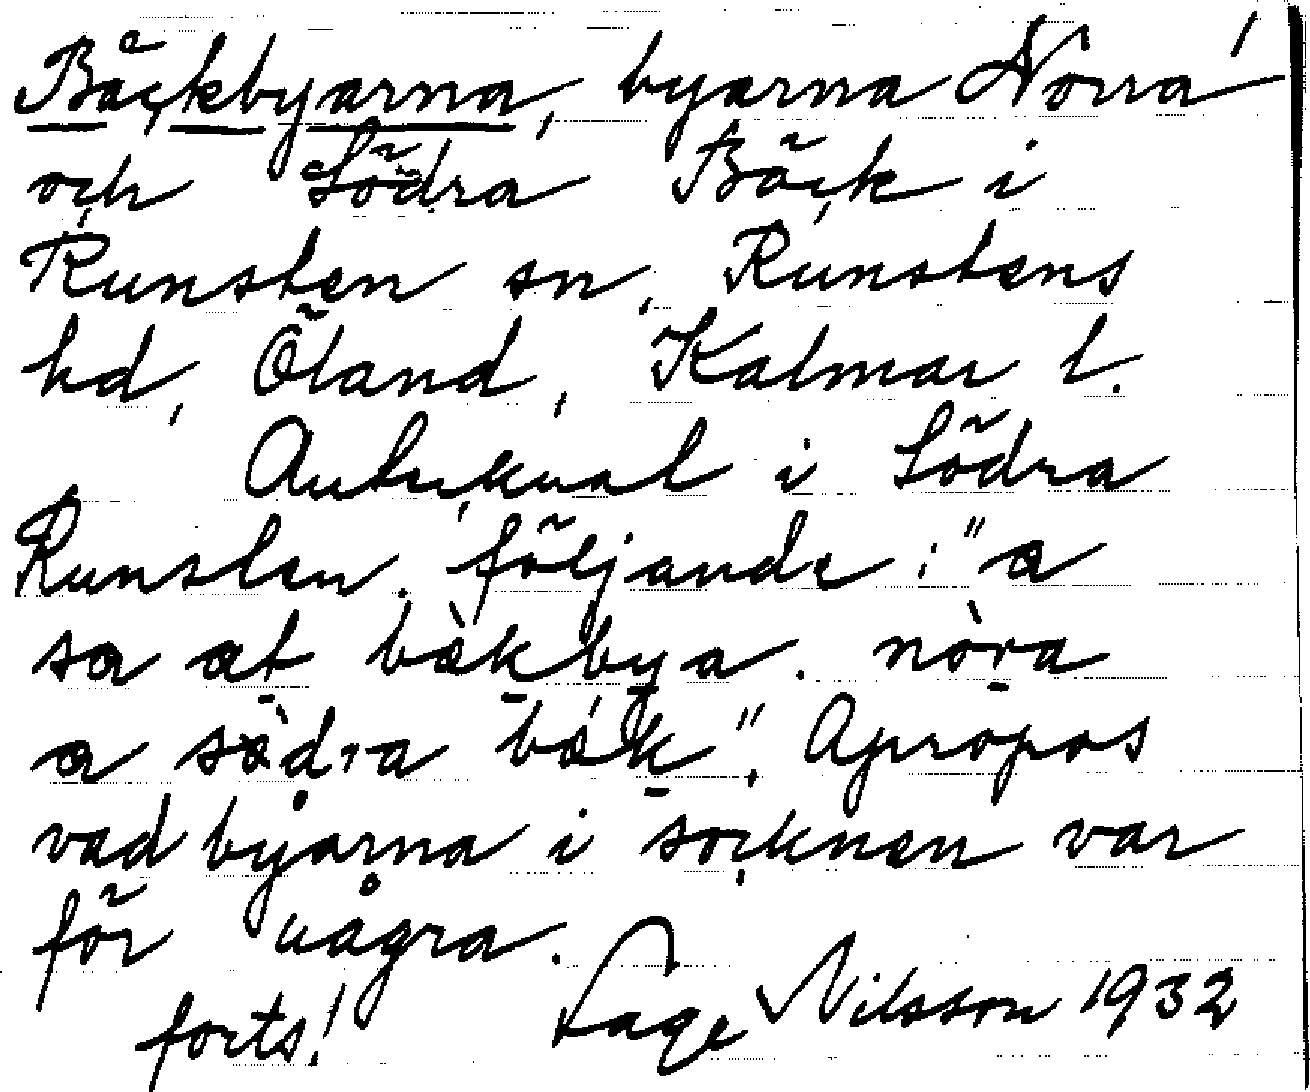 Bäckbyarna, byarna Norra
och Södra Bäck i
Runsten sn, Runstens
hd, Öland, Kalmar l.
Antikval i Södra
Runsten. följande: "a
sa at bàkbya. nòra
a sàdra bák", Apropos
vad byarna i socknen var
för några.
forts! Lage Nilsson 1932